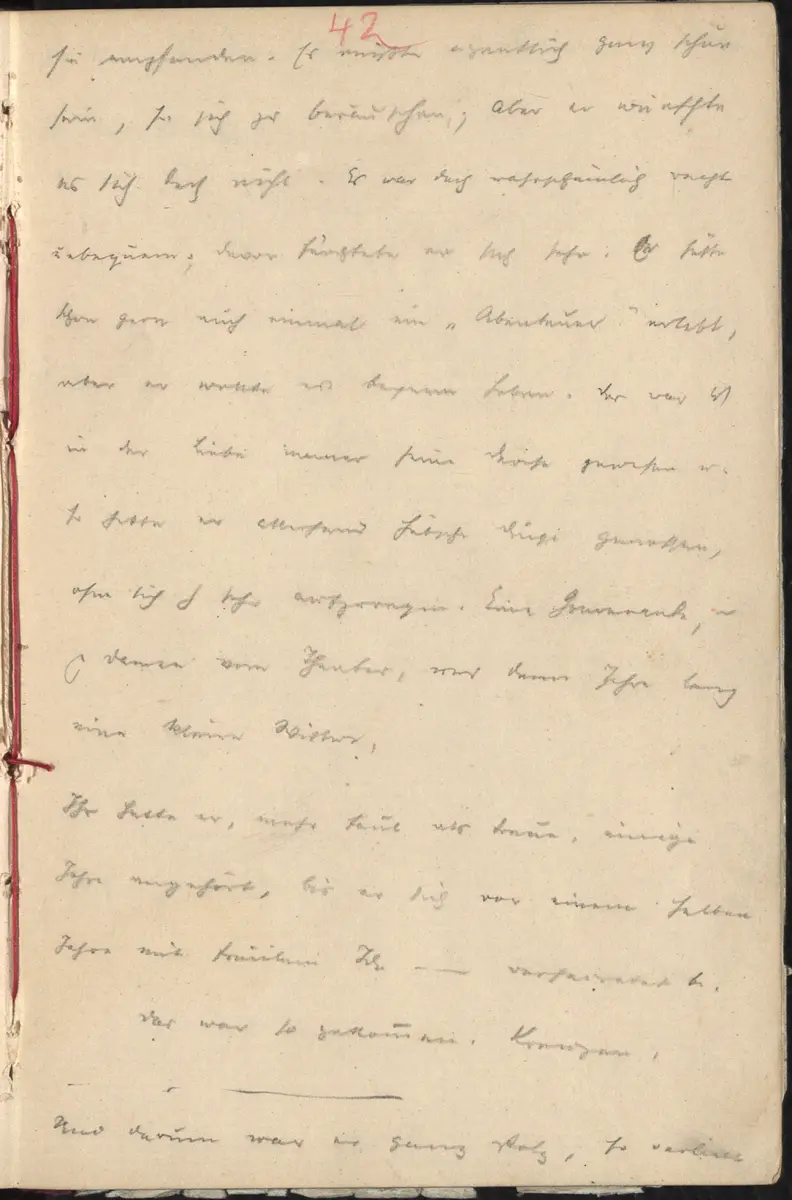 42
sie empfunden. Es müßte eigentlich ganz schön
sein, so sich zu berauschen; aber er wünschte
es sich doch nicht. Es war doch wahrscheinlich recht
unbequem; davor fürchtete er sich sehr. Er hätte
schon gern auch einmal ein „Abenteuer" erlebt,
aber er wollte es bequem haben. Das war
in der Liebe immer seine Devise gewesen u.
so hatte er allerhand hübsche Dinge genossen,
ohne sich sehr aufzuregen. Eine Gouvernante,
Damen vom Theater, und dann Jahre lang
eine kleine Witwe.
Ihr hatte er, mehr faul als treu, einige
Jahre angehört, bis er sich vor einem halben
Jahre mit Fräulein Ida —— verheiratet h.
Das war so gekommen.
Und darum war er ganz stolz, so